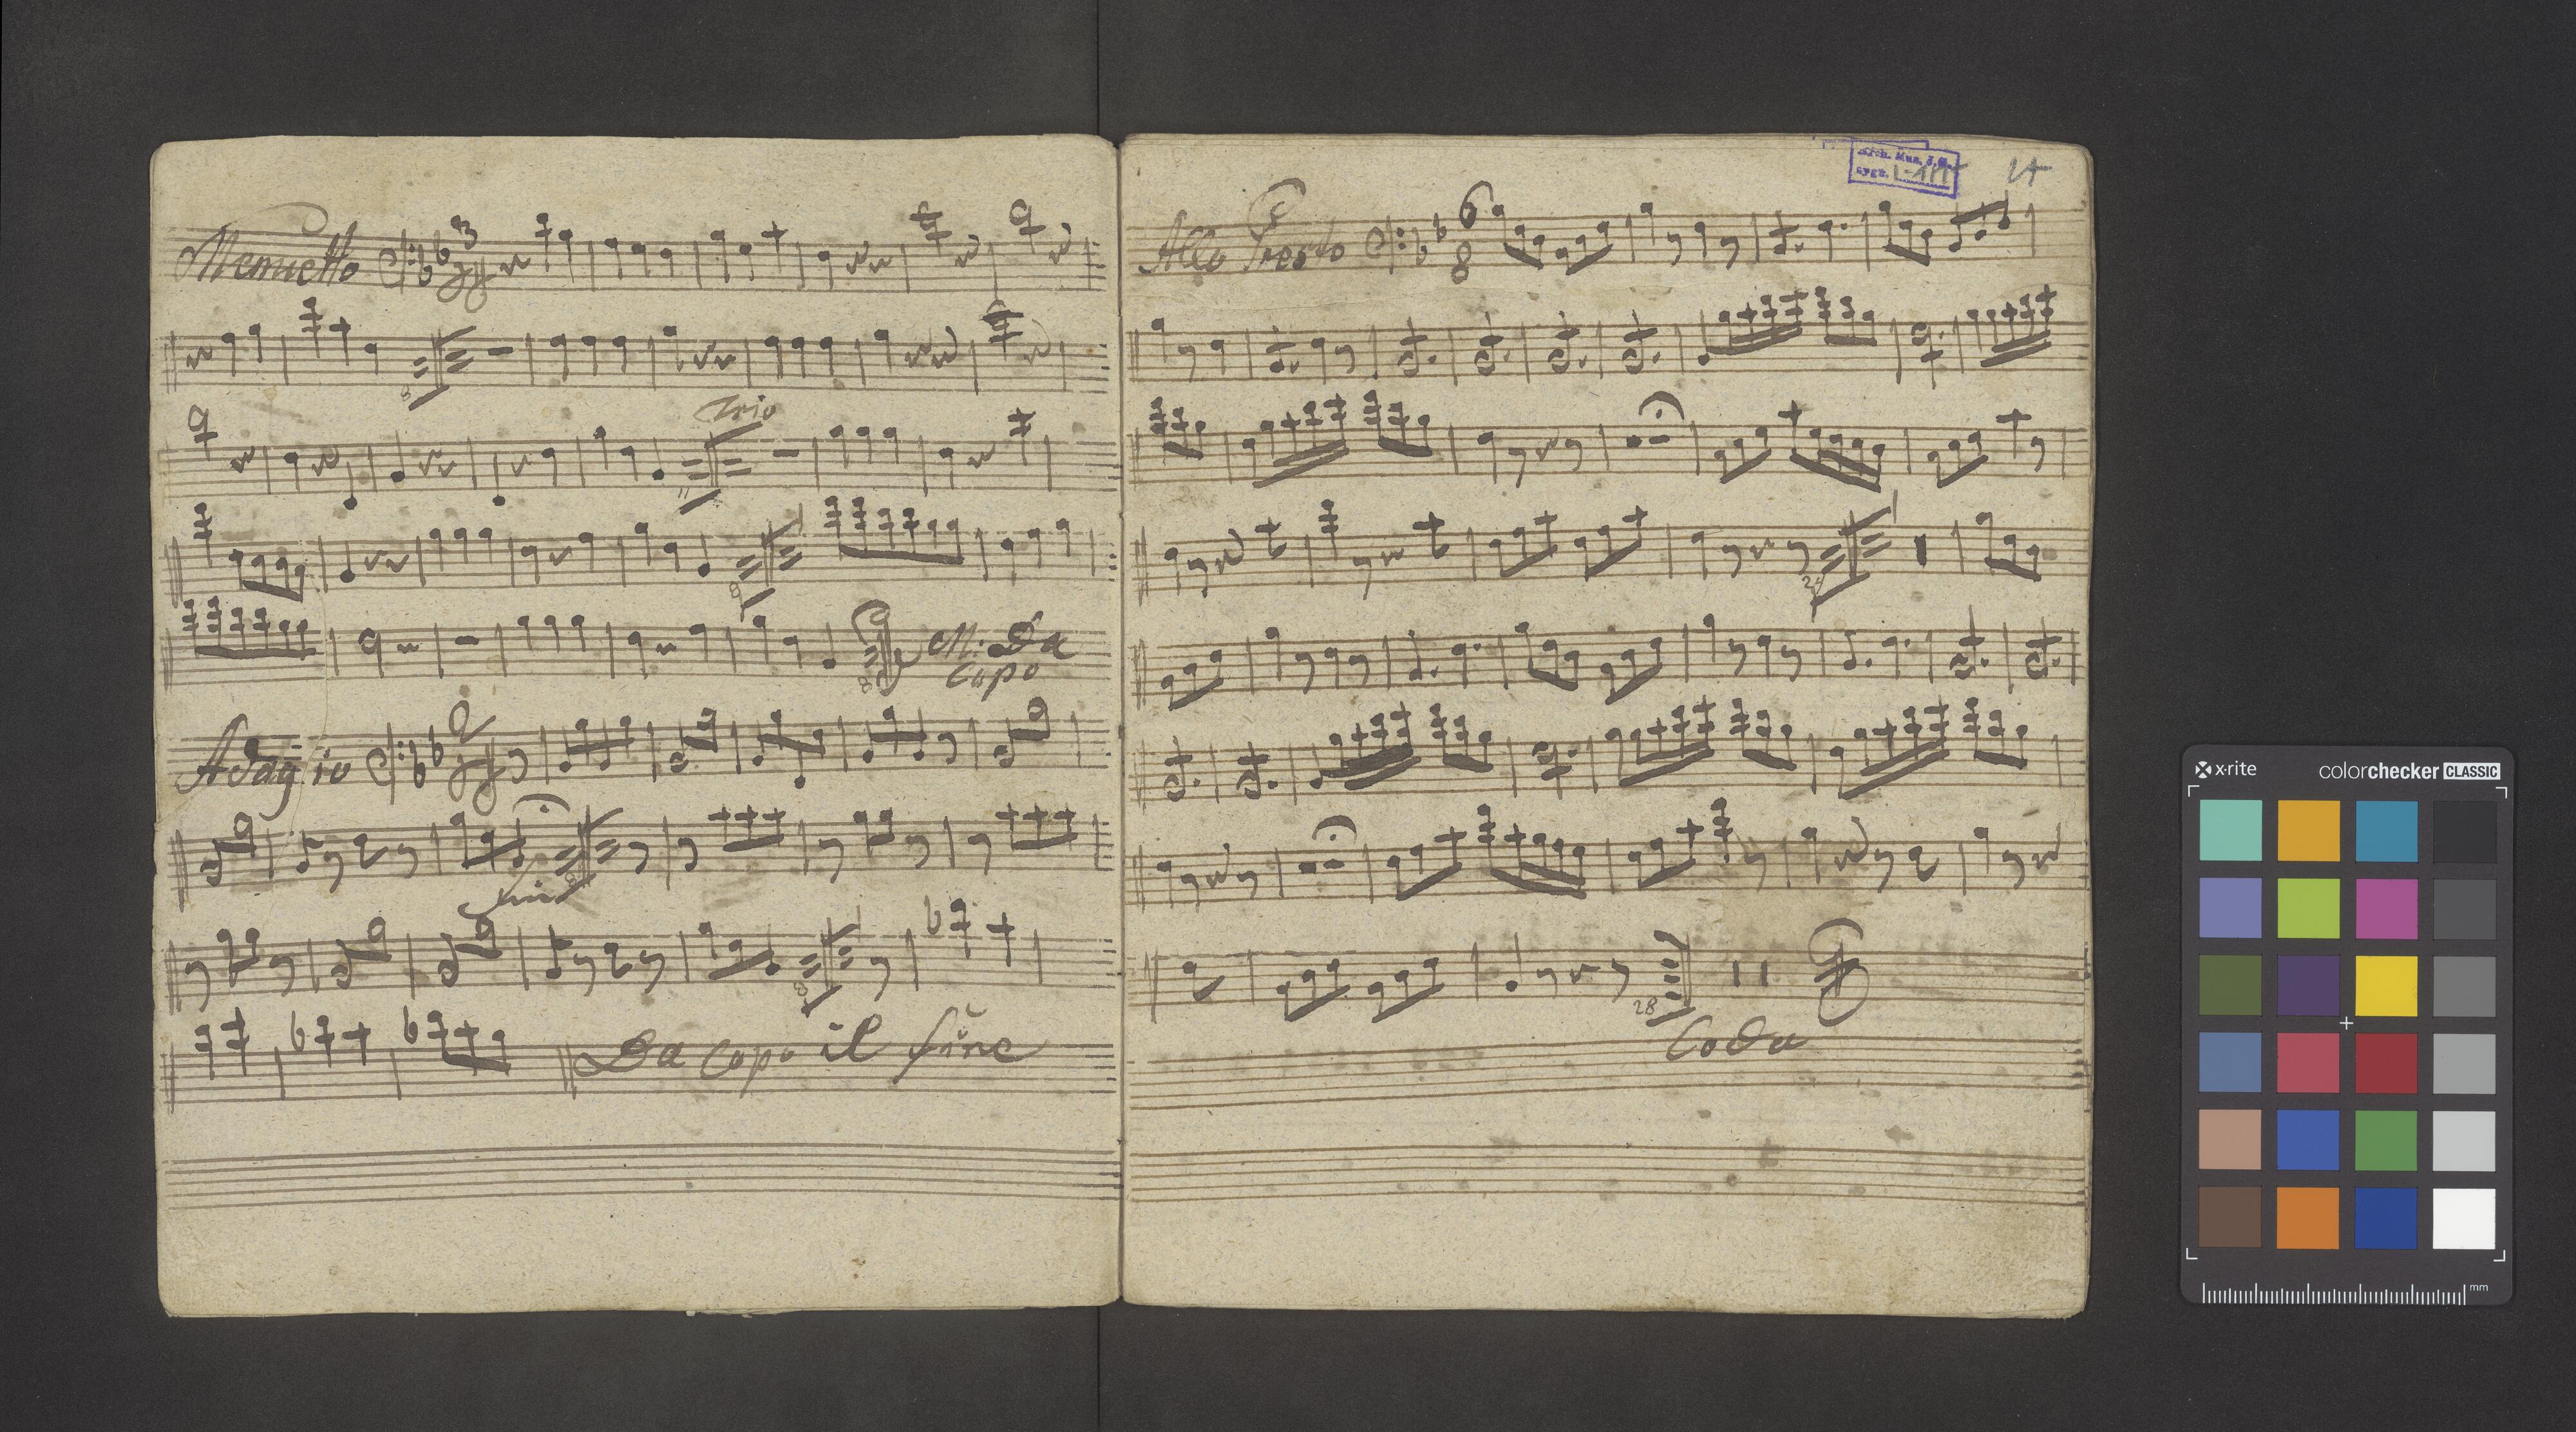 Menuetto
3
8
Trio
11
8
8
M: Da
Capo
Adagio
2
8
Da Capo il fine
Arch. Mus. J.G.
sygn.
14
Allo Presto
6
8
24
28
Coda
x-rite
colorchecker CLASSIC
mm